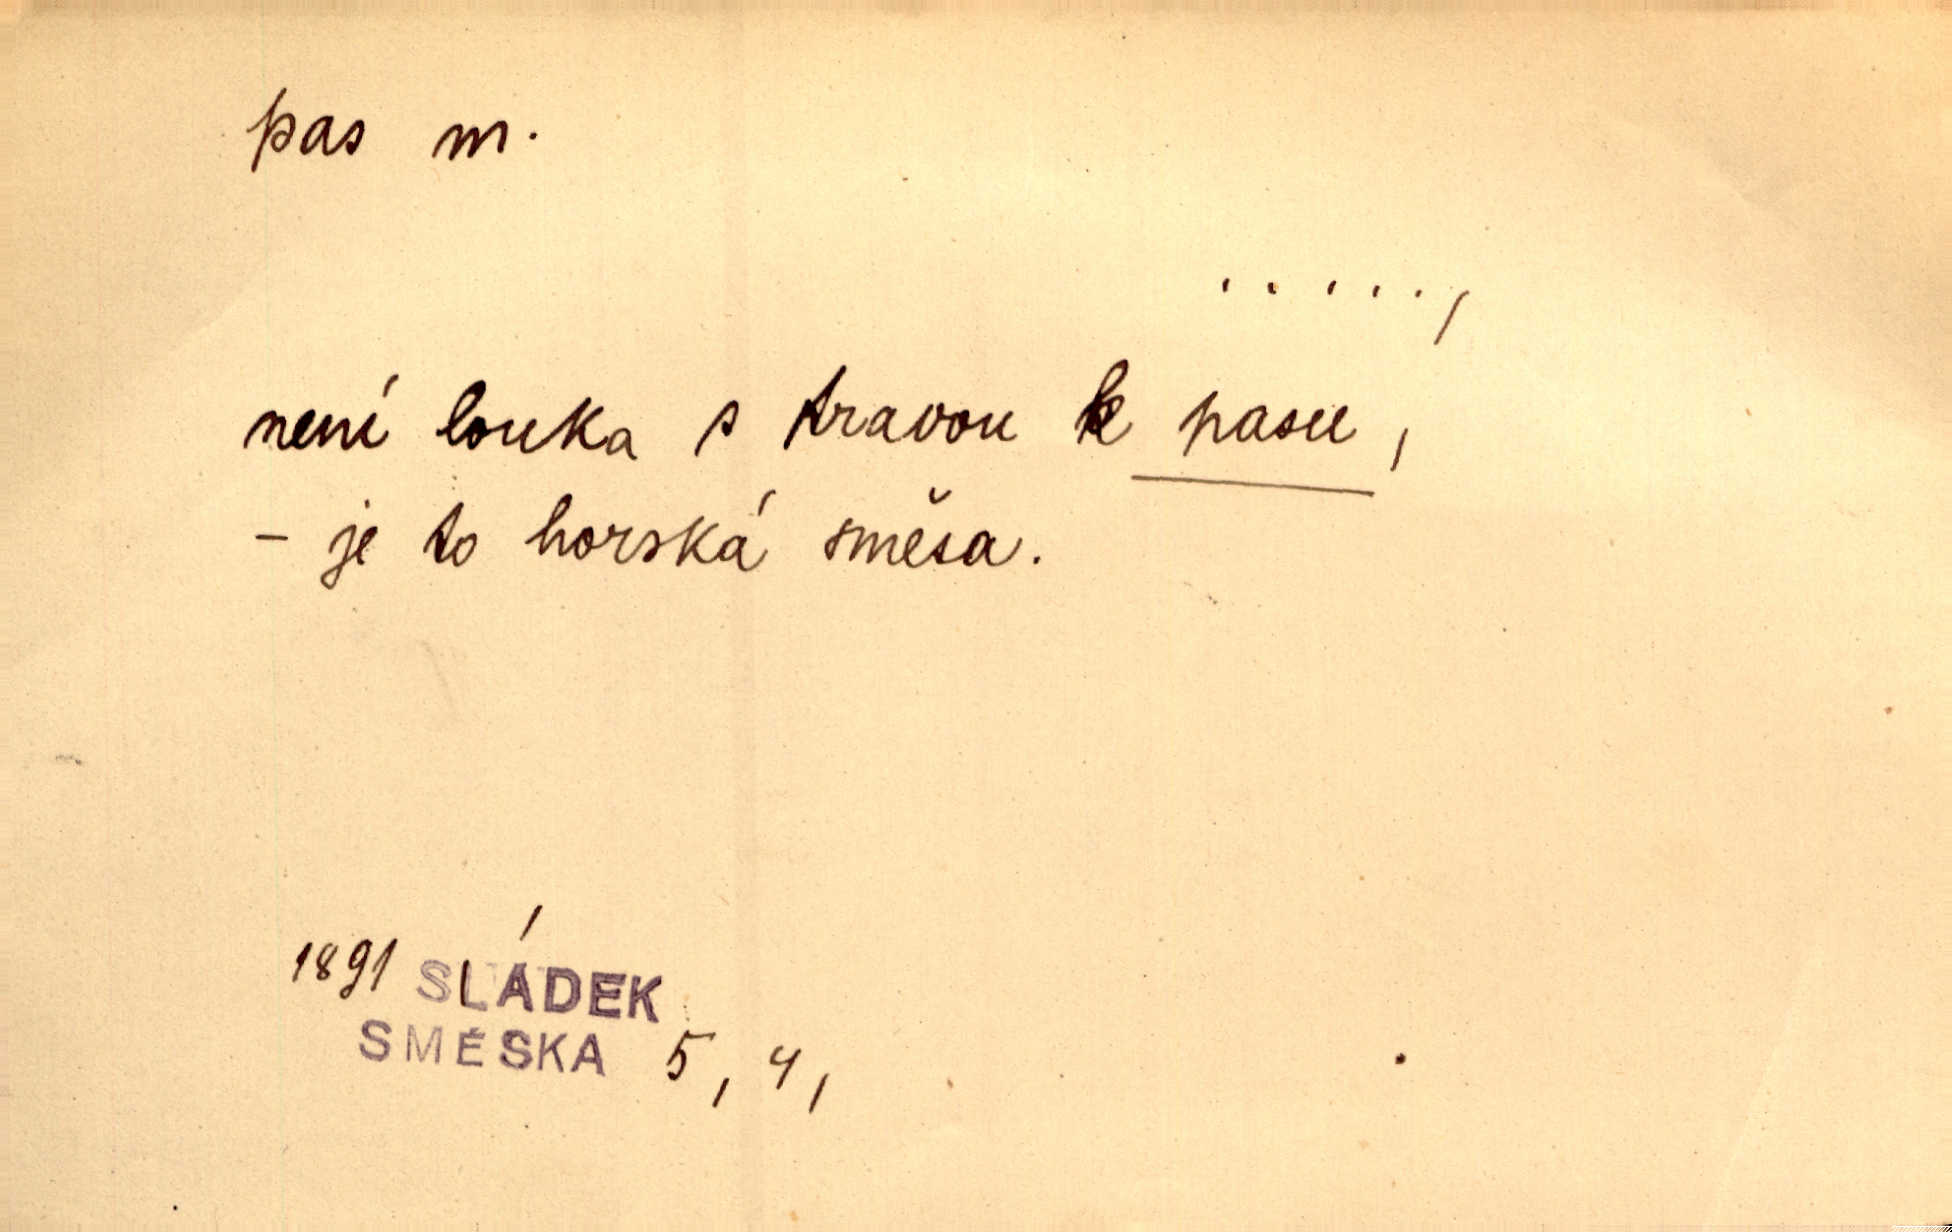 pas m.
.....,
není louka s travou k pasu,
– je to horská směsa.
1891 SLÁDEK
SMĚSKA 5, 4,